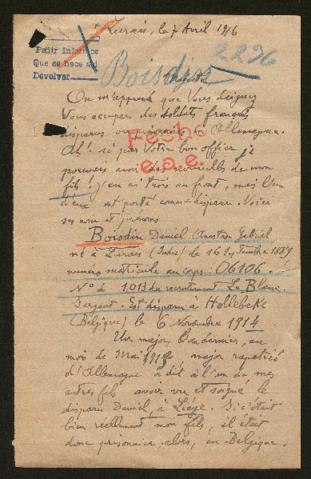 Lurais, le 7 Avril 1916
Pedir informes
Que se hace asi
Devolver
2296
Boisdin
On m'apprend que Vous daignez
Vous occuper des soldats français
disparus ou en Allemagne.
Ah! si par Votre bon office je
pouvais avoir des nouvelles de mon
fils! J'en ai trois au front, mais l'un
d'eux est porté comme disparu. Voici
ses nom et prénoms
Fecho
e.a.e.
Boisdin Daniel Gabriel
né à Lurais (Indre) le 16 Septembre 1889
numéro matricule au corps: 06106.
No de 1.013 du recrutement Le Blanc.
Sergent. Est disparu à Hollebeke
(Belgique) le 6 Novembre 1914
Un major, au
mois de Mai 1915 major rapatrié
d'Allemagne a dit à l'un de mes
autres fils avoir vu et soigné le
disparu Daniel à Liége. Si c'était
bien réellement mon fils, il était
donc prisonnier alors, en Belgique.